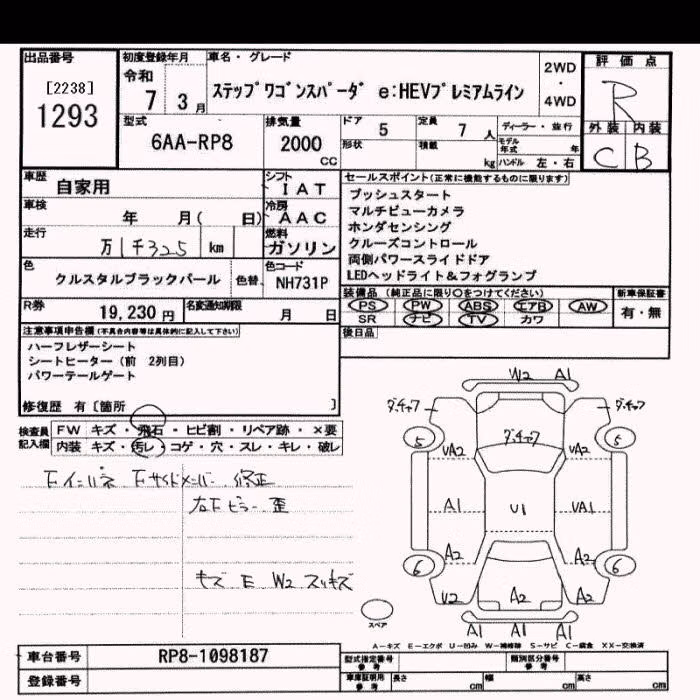 出品番号
[2238]
1293
初度登録年月
令和
7 3月
車名・グレード
ステップワゴンスパーダ e:HEVプレミアムライン
2WD
・
4WD
評価点
R
外装 内装
C B
型式
6AA-RP8
排気量
2000
cc
ドア 5
形状
定員 7人
積載 kg
ディーラー・並行
モデル年式 年
ハンドル 左・右
車歴
自家用
シフト
IAT
車検
年 月( 日)
冷房
AAC
走行
万 1千325 km
燃料
ガソリン
色
クルスタルブラックパール
色替
色コード
NH731P
R券
19,230円
名変通知期限
月 日
セールスポイント(正常に機能するものに限ります)
プッシュスタート
マルチビューカメラ
ホンダセンシング
クルーズコントロール
両側パワースライドドア
LEDヘッドライト&フォグランプ
装備品 (純正品に限り○をつけてください)
PS PW ABS エアB AW
SR ナビ TV カワ
新車保証書
有・無
後日品
注意事項申告欄(不具合内容等は具体的に記入して下さい)
ハーフレザーシート
シートヒーター(前 2列目)
パワーテールゲート
修復歴 有〔箇所 〕
検査員記入欄
FW キズ・飛石・ヒビ割・リペア跡・×要
内装 キズ・汚レ・コゲ・穴・スレ・キレ・破レ
Fインパネ Fサイドメンバー 修正
左Fピラー 歪
キズ E W2 スリキズ
W2 A1
ダ.チャワ ダ.チャワ
5 5
ダ.チャワ
UA2 UA2
A1 U1 UA1
A2 A2
6 6
U2 A2 A2
A1 A1 A1
スペア
A-キズ E-エクボ U-凹み W-補修跡 S-サビ C-腐食 XX-交換済
車台番号
RP8-1098187
登録番号
型式指定番号
参考
類別区分番号
参考
車庫証明用
参考
長さ cm
幅 cm
高さ cm